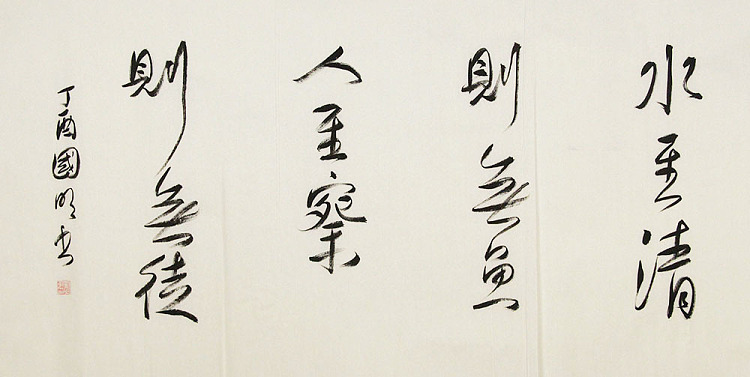 水至清
則無魚
人至察
則無徒
丁酉國明书